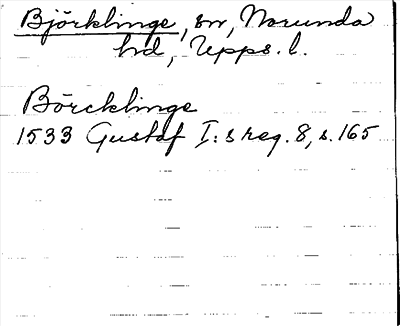 Björklinge, sn, Norunda
hd, Upps. l.
Börcklinge
1533 Gustaf I:s reg. 8, s. 165